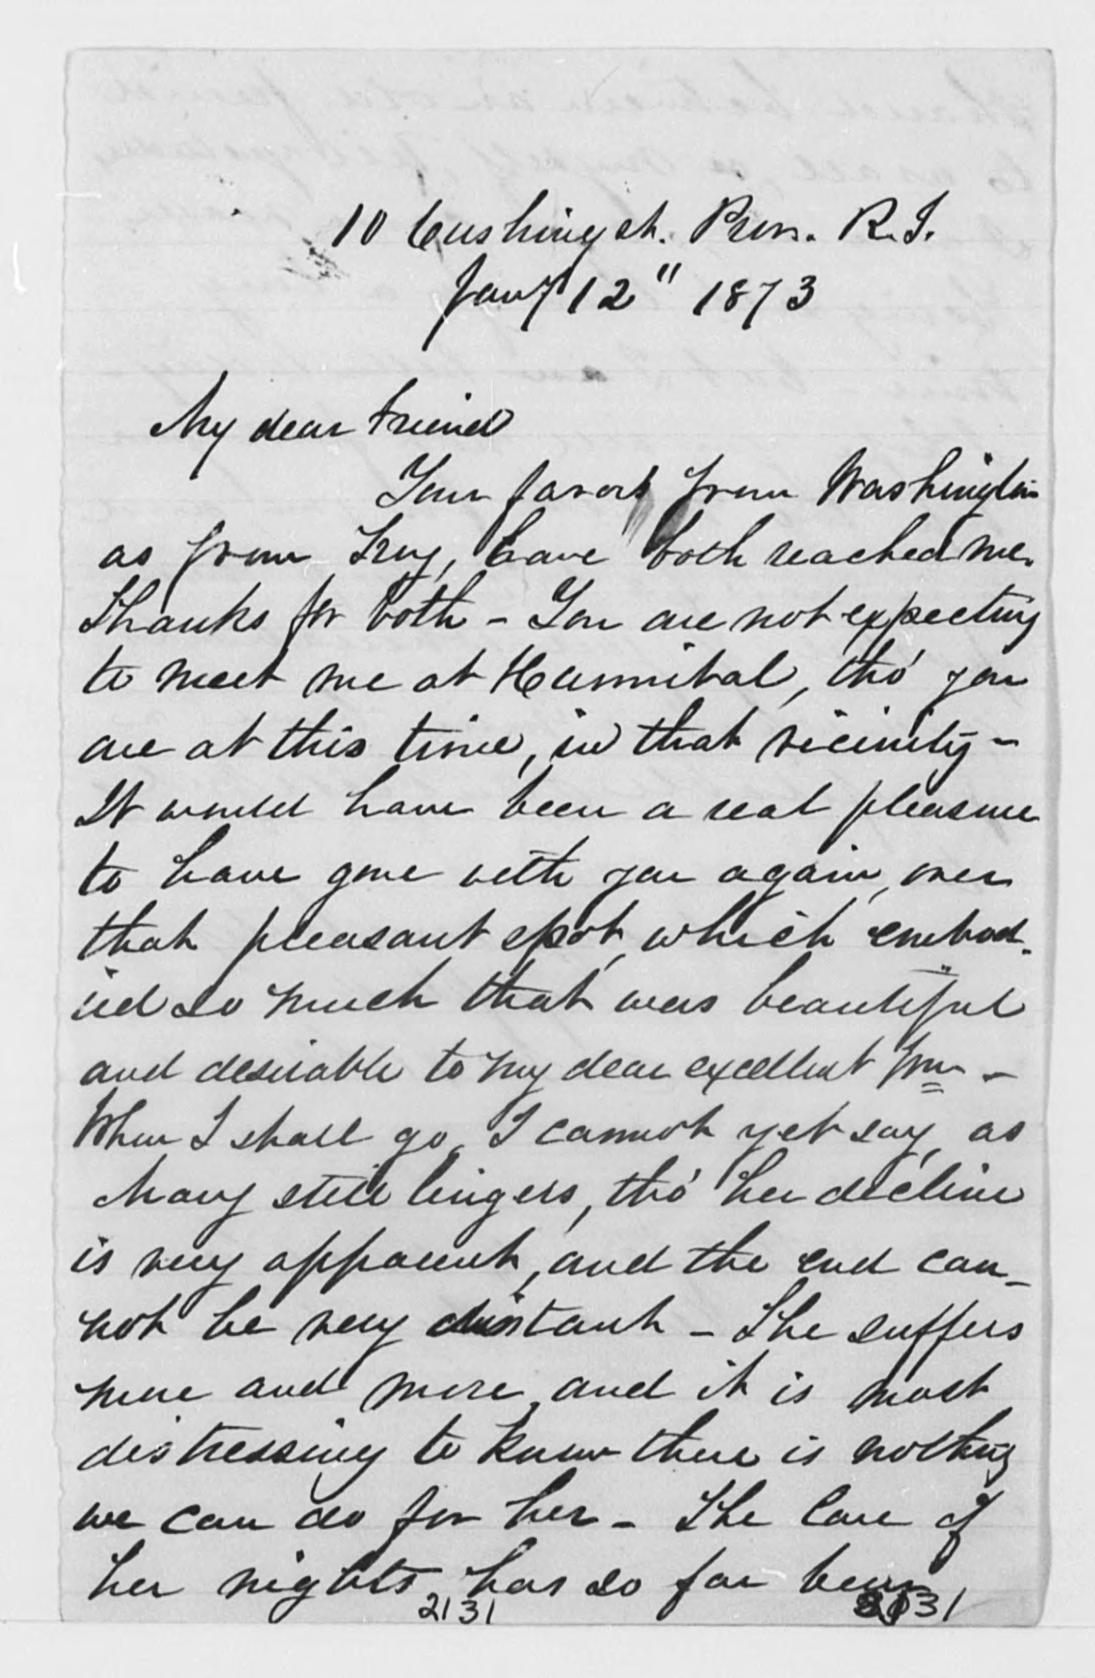 10 Cushing st. Prov. R.I.
Jany 12" 1873
My dear friend
Your favors from Washington
as from Troy, have both reached me.
Thanks for both - You are not expecting
to meet me at Hannibal, tho' you
are at this time, in that vicinity -
It would have been a real pleasure
to have gone with you again, over
that pleasant spot, which embod-
ied so much that was beautiful
and desirable to my dear excellent Wm -
When I shall go, I cannot yet say, as
Mary still lingers, tho' her decline
is very apparent, and the end can-
not be very distant - She suffers
more and more, and it is most
distressing to know there is nothing
we can do for her - The care of
her nights, has so far been
2131 2131